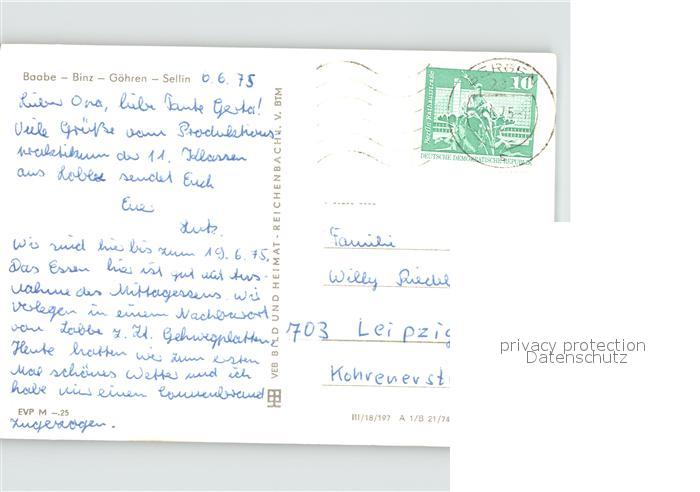 Baabe – Binz – Göhren – Sellin 6.6.75
Lieber Opa, liebe Tante Gerta!
Viele Grüße vom Produktions
praktikum der 11. Klassen
aus sendet Euch
Euer
Lutz.
Wir sind hier bis zum 19.6.75.
Das Essen hier ist gut mit Aus-
nahme des Mittagessens. Wir
verlegen in einem Nachbarort
von z. Zt. Gehwegplatten.
Heute hatten wir zum ersten
Mal schönes Wetter und ich
habe mir einen Sonnenbrand
EVP M –.25
zugezogen.
VEB BILD UND HEIMAT · REICHENBACH i. V. BTM
10
Berlin, Rathausstraße
DEUTSCHE DEMOKRATISCHE REPUBLIK
Familie
Willy
703 Leipzig
Kohrenerst
III/18/197 A 1/B 21/74
privacy protection
Datenschutz